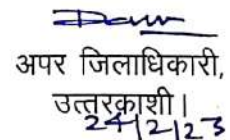 अपर जिलाधिकारी,
उत्तरकाशी।
24/2/23